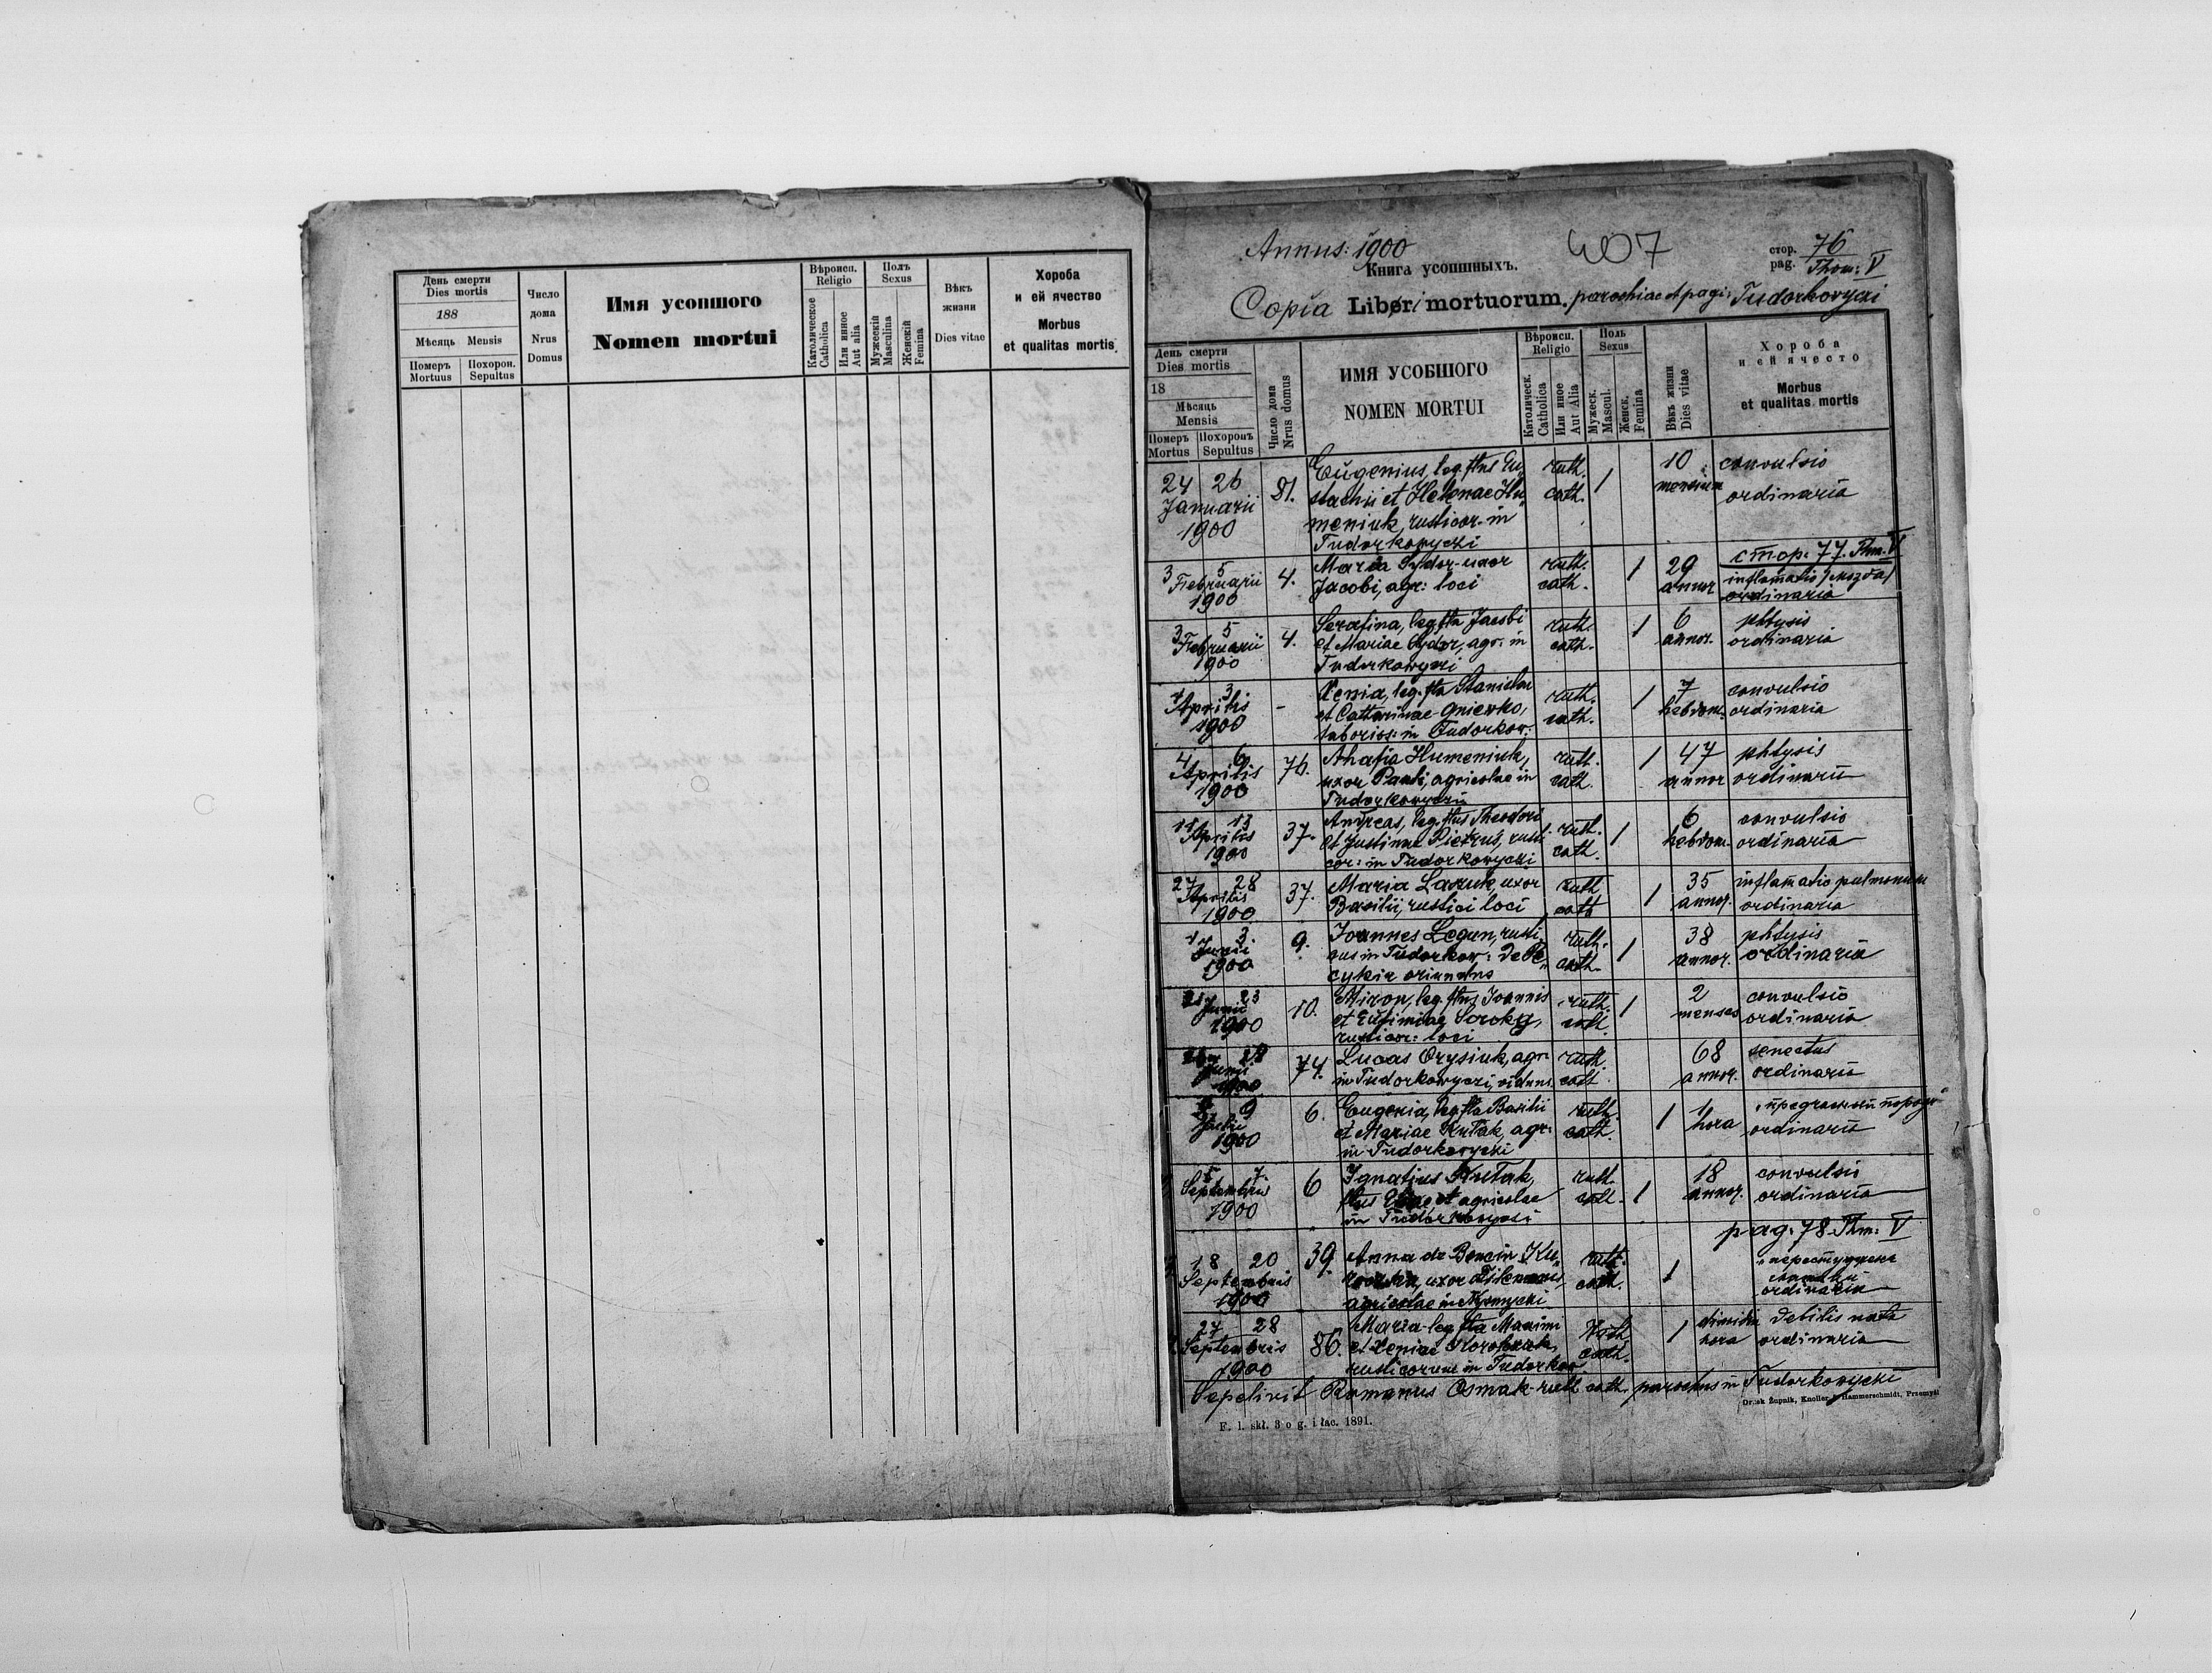 День смерти
Dies mortis
188
Мѣсяць Mensis
Померъ Mortuus
Похорон. Sepultus
Число дома
Nrus Domus
Имя усопшого
Nomen mortui
Вѣроисп.
Religio
Католическое Catholica
Или инное Aut alia
Полъ
Sexus
Мужескій Masculina
Женскій Femina
Вѣкъ жизни
Dies vitae
Хороба
и ей ячество
Morbus
et qualitas mortis
Annus: 1900
407
стор. pag. 76 Thom: V
Книга усопшныхъ.
Copia Liberi mortuorum. parochiae et pagi: Tudorkowyczi
День смерти
Dies mortis
18
Мѣсяць
Mensis
Померъ Mortus
Похоронъ Sepultus
Число дома
Nrus domus
ИМЯ УСОБШОГО
NOMEN MORTUI
Вѣроисп.
Religio
Католическ. Catholica
Или иное Aut Alia
Поль
Sexus
Мужеск. Mascul.
Женск. Femina
Вѣкъ жизни
Dies vitae
Хороба
и ей ячесто
Morbus
et qualitas mortis
24 26 Januarii 1900
81.
Eugenius, leg. flius Eu„
stachii et Helenae Hu„
meniuk, rusticor. in
Tudorkowyczi
ruth. cath.
1
10 mensium
convulsio
ordinaria
стор: 77. Thm. V
3 5 Februarii 1900
4.
Maria Sydor-uxor
Jacobi, agr: loci
ruth. cath.
1
29 annor
inflamatio /мозга/
ordinaria
3 5 Februarii 1900
4.
Serafina, leg. flia Jacobi
et Mariae Sydor, agr: in
Tudorkowyczi
ruth. cath.
1
6 annor.
phtysis
ordinaria
1 3 Aprilis 1900
-
Xenia, leg. flia Stanislai
et Catharinae Gniewko,
laborios: in Tudorkow:
ruth. cath.
1
7 hebdom.
convulsio
ordinaria
4 6 Aprilis 1900
76.
Ahafia Humeniuk,
uxor Pauli, agricolae in
Tudorkowyczi
ruth. cath.
1
47 annor
phtysis
ordinaria
11 13 Aprilis 1900
37.
Andreas, leg. flius Theodori
et Justinae Pietrus, rusti
cor: in Tudorkowyczi
ruth. cath.
1
6 hebdom.
convulsio
ordinaria
27 28 Aprilis 1900
37.
Maria Lazuk, uxor
Basilii, rustici loci
ruth cath
1
35 annor.
inflamatio pulmonum
ordinaria
1 3. Junii 1900
9.
Joannes Legun, rusti„
cus in Tudorkow:
oriundus
ruth. cath.
1
38 annor.
phtysis
ordinaria
21 23 Junii 1900
10.
Miron, leg. flius Joannis
et Eufimiae Soroka,
rusticor: loci
ruth. cath.
1
2 menses
convulsio
ordinaria
Junii 1900
74.
Lucas Orysiuk, agr.
in Tudorkowyczi, viduus
ruth. cath.
68 annor.
senectus
ordinaria
9 Julii 1900
6.
Eugenia, leg. flia Basilii
et Mariae Kutak, agr:
in Tudorkowyczi
ruth. cath.
1
1 hora
ordinaria
5 7 Septembris 1900
6
Ignatius Kutak,
flius agricolae
in Tudorkowyczi
ruth. cath.
1
18 annor.
convulsio
ordinaria
pag: 78. Thm: V
18 20 Septembris 1900
39.
Anna de
uxor
agricolae in
ruth. cath.
1
ordinaria
27 28 Septembris 1900
86.
Maria leg. flia Maximi
et Xeniae
rusticorum in Tudorkow
Ruth cath.
1
dimidia hora
debilis nata
ordinaria
Sepelivit Romanus Osmak ruth. cath. parochus in Tudorkowyczi
F. l. skł. 3 o g. i łac. 1891.
Druk Żupnik, Knoller & Hammerschmidt, Przemyśl